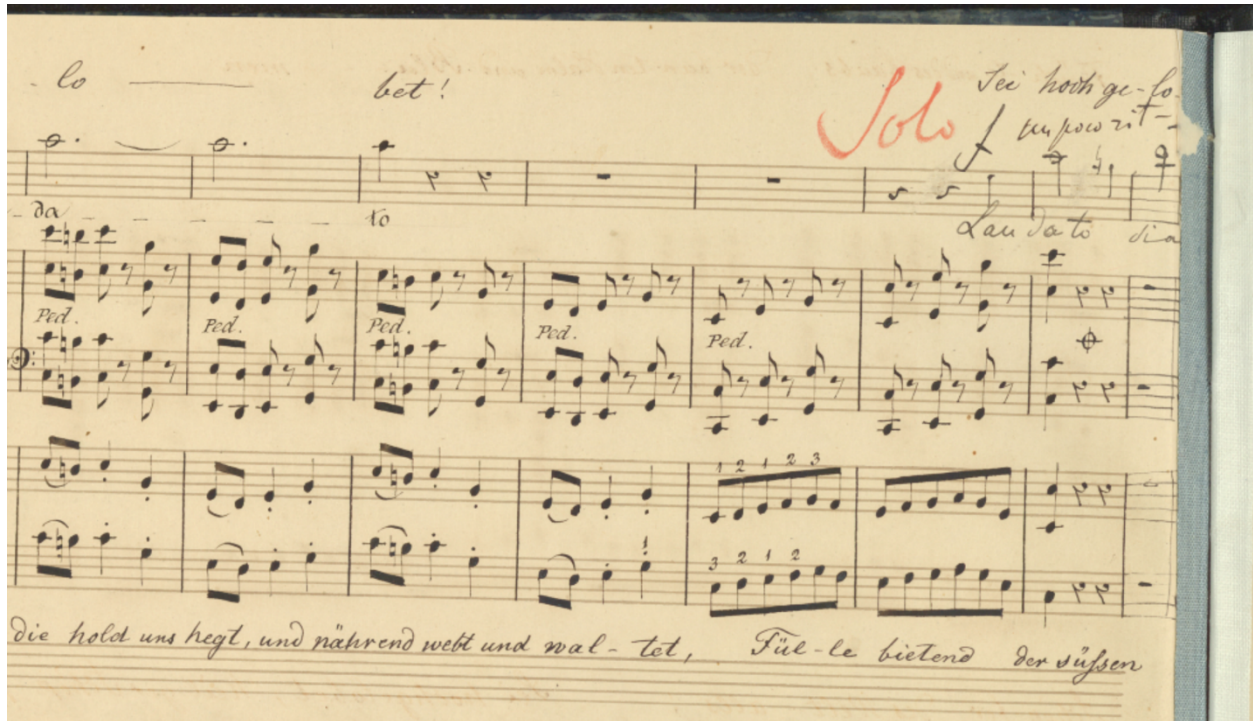 lo bet! Sei hoch ge-lo-
Solo f un poco rit-
da to Laudato sia
Ped. Ped. Ped. Ped. Ped.
1 2 1 2 3
1 3 2 1 2
die hold uns hegt, und nährend webt und wal-tet, Fül-le bietend der süßen